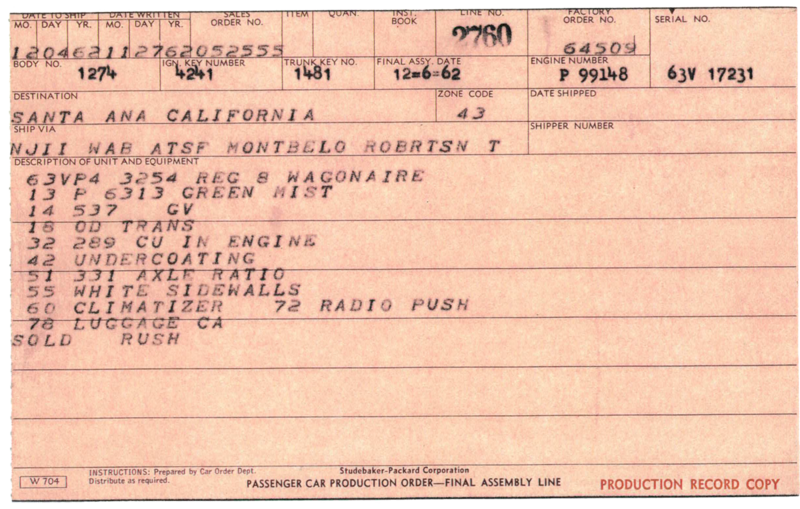 DATE TO SHIP DATE WRITTEN SALES ORDER NO. ITEM QUAN. INST. BOOK LINE NO. FACTORY ORDER NO. SERIAL NO.
MO. DAY YR. MO. DAY YR.
2760
120462112762052555 64509
BODY NO. IGN. KEY NUMBER TRUNK KEY NO. FINAL ASSY. DATE ENGINE NUMBER
1274 4241 1481 12=6=62 P 99148 63V 17231
DESTINATION ZONE CODE DATE SHIPPED
SANTA ANA CALIFORNIA 43
SHIP VIA SHIPPER NUMBER
NJII WAB ATSF MONTBELO ROBRTSN T
DESCRIPTION OF UNIT AND EQUIPMENT
63VP4 3254 REG 8 WAGONAIRE
13 P 6313 GREEN MIST
14 537 GV
18 OD TRANS
32 289 CU IN ENGINE
42 UNDERCOATING
51 331 AXLE RATIO
55 WHITE SIDEWALLS
60 CLIMATIZER 72 RADIO PUSH
78 LUGGAGE CA
SOLD RUSH
W 704
INSTRUCTIONS: Prepared by Car Order Dept.
Distribute as required.
Studebaker-Packard Corporation
PASSENGER CAR PRODUCTION ORDER—FINAL ASSEMBLY LINE
PRODUCTION RECORD COPY